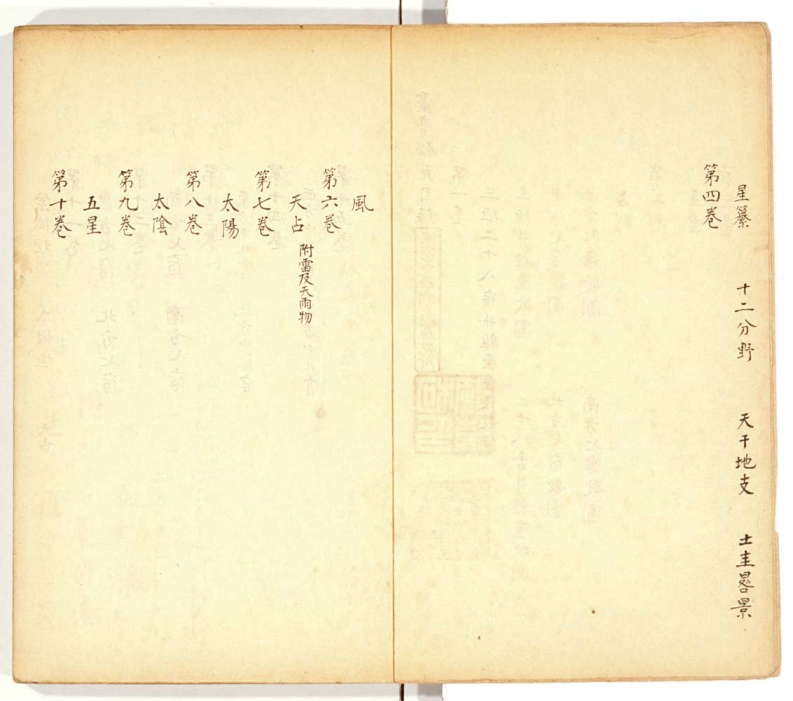 星纂　十二分野　天干地支　土圭晷景
第四卷
風
第六卷
天占 附雷及天雨物
第七卷
太陽
第八卷
太陰
第九卷
五星
第十卷